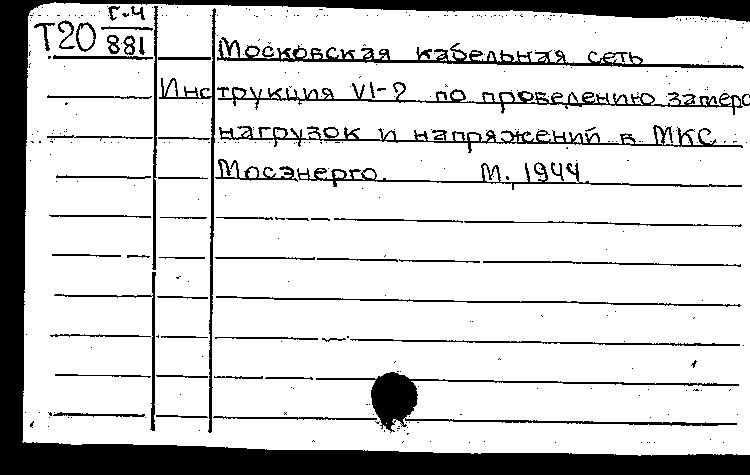 Т20 Г-4
881
Московская кабельная сеть
Инструкция VI-2 по проведению замеро
нагрузок и напряжений в МКС
Мосэнерго. М., 1944.